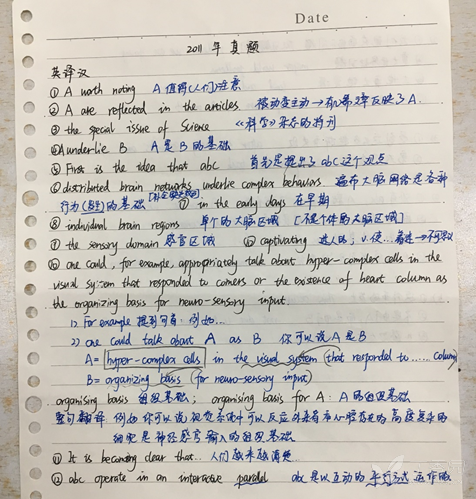 Date
2011 年 真题
英译汉
① A worth noting A 值得(人们)注意
② A are reflected in the articles. 被动变主动→有的文章反映了A.
③ the special issue of Science 《科学》杂志的特刊
④A underlie B A 是 B 的基础
⑤ First is the idea that abc 首先是提出了abc这个观点
⑥ distributed brain networks underlie complex behaviors 遍布大脑网络是各种
行为(复杂)的基础 ⑦ in the early days 在早期
⑧ individual brain regions 单个的大脑区域 [不是个体的大脑区域]
⑨ the sensory domain 感官区域 ⑩ captivating 迷人的; v.使…着迷
⑩ one could, for example, appropriately talk about hyper-complex cells in the
visual system that responded to corners or the existence of heart column as
the organizing basis for neuro-sensory input.
1) For example 提到句首: 例如…
2) one could talk about A as B 你可以说 A 是 B
A= hyper-complex cells in the visual system (that responded to …… column)
B= organizing basis (for neuro-sensory input)
organising basis 组因基础; organising basis for A: A 的组因基础
整句翻译 例如 你可以说视觉系统中可以反应
细胞是神经感官输入的组因基础
⑪ It is becoming clear that… 人们越来越清楚
⑫ abc operate in an interactive parallel abc 是以互动的平行方式运作的